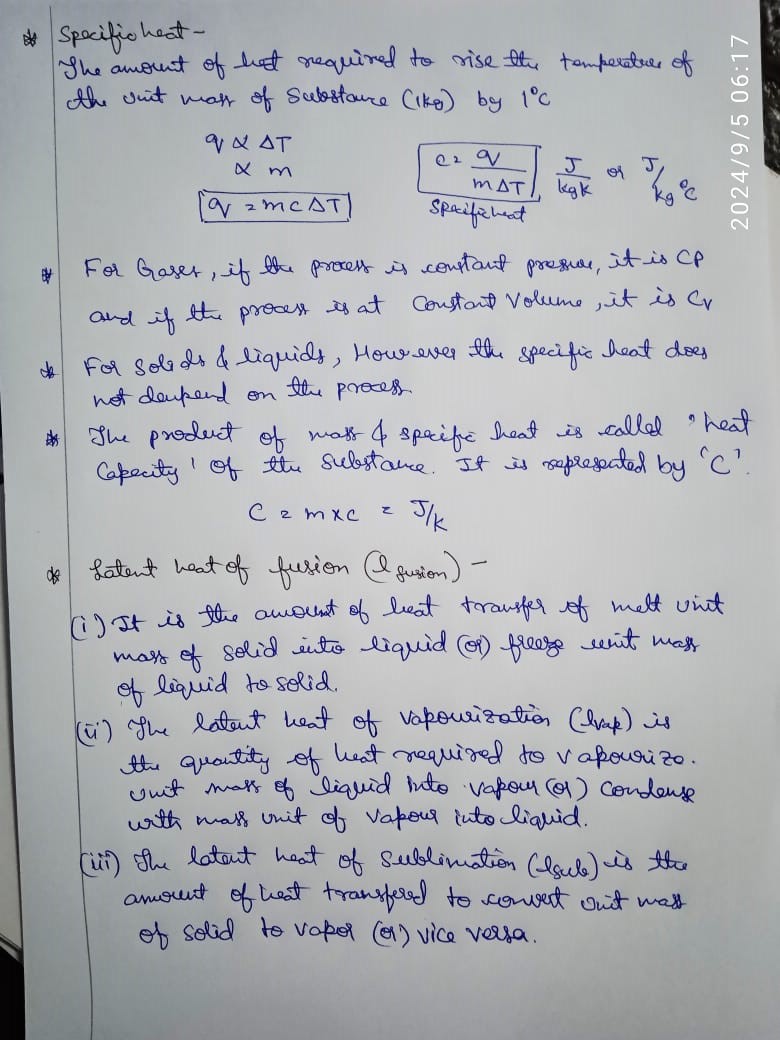 * Specific heat -
The amount of het required to rise the temperature of
the unit mass of Substance (1kg) by 1°C
q ∝ ΔT
∝ m
q = mcΔT
c = q / mΔT J/kgk or J/kg°C
Specific heat
* For Gases, if the process is constant pressure, it is CP
and if the process is at Constant Volume, it is Cv
* For Solids & liquids, However the specific heat does
not deupend on the process
* The product of mass & specific heat is called 'heat
Capecity' of the substance. It is represented by 'C'.
C = m×c = J/k
* Latent heat of fusion (l fusion) -
(i) It is the amount of heat transfer of melt unit
mass of solid into liquid (or) freeze unit mass
of liquid to solid.
(ii) The latent heat of vapourization (lvap) is
the quantity of heat required to vapourize.
unit mass of liquid into vapour (or) condense
with mass unit of vapour into liquid.
(iii) The latent heat of sublimation (lsub) is the
amount of heat transfered to convert unit mass
of solid to vapor (or) vice versa.
2024/9/5 06:17